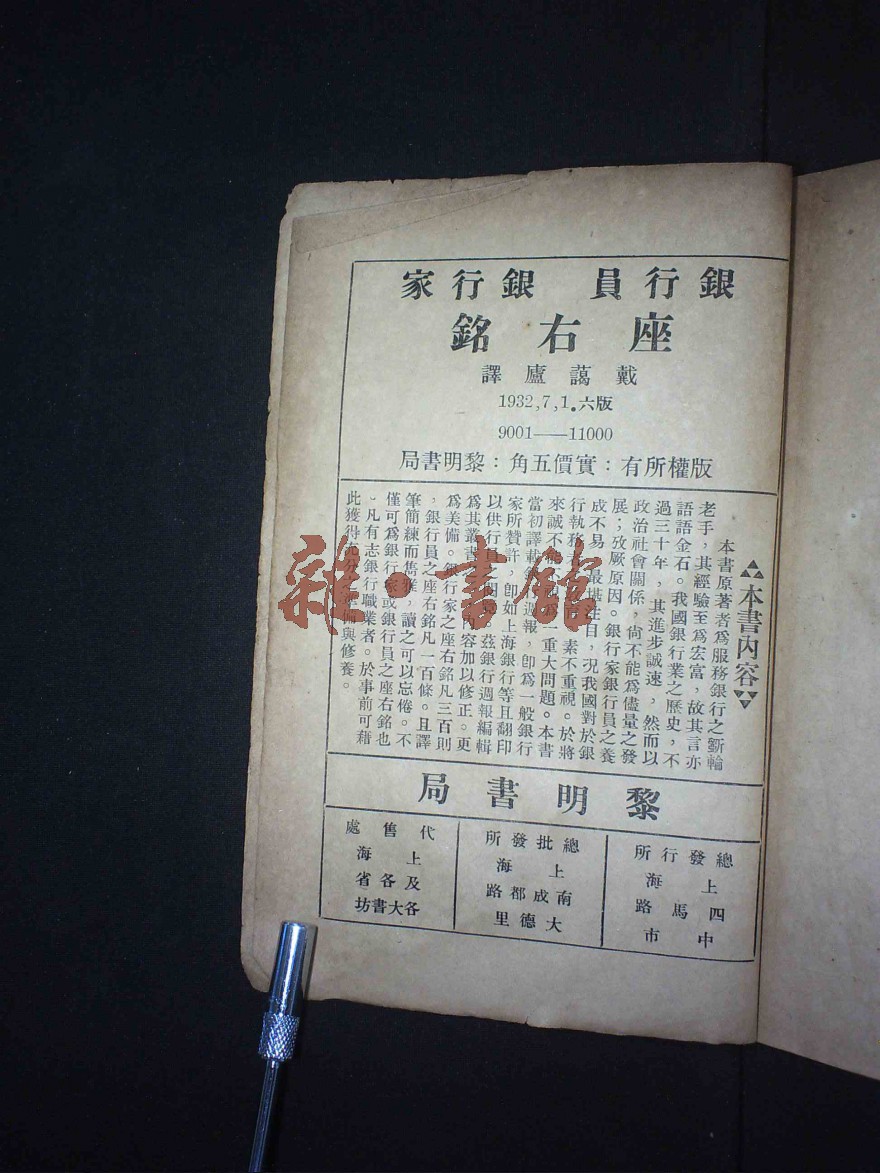 銀行員 銀行家
座右銘
戴藹廬譯
1932,7,1.六版
9001——11000
版權所有：實價五角：黎明書局
▲▲本書內容▼▼
本書原著者爲服務銀行之斵輪
老手，其經驗至爲宏富，故其言亦
語語金石。我國銀行業之歷史，不
過三十年，其進步誠速，然而以
政治社會關係，尙不能爲儘量之發
展；攷厥原因。銀行家銀行員之養
成不易，最堪注目，况我國對於銀
行執務 言，素不重視。於將
來誠不能 重大問題。本書
當初譯載 週報，卽爲一般銀行
家所贊許，卽如上海銀行等且翻印
以供行員 閱 茲銀行週報編輯
爲其叢書 內容加以修正。更
爲美備。銀行家之座右銘凡三百則
，銀行員之座右銘凡一百條。且譯
筆簡練而雋雅，讀之可以忘倦。不
僅可爲銀行家或銀行員之座右銘也
。凡有志銀行職業者。於事前可藉
此獲得充分之 與修養。
黎明書局
總發行所
上海
四馬路
中市
總批發所
上海
南成都路
大德里
代售處
上海
及各省
各大書坊
雜·書館